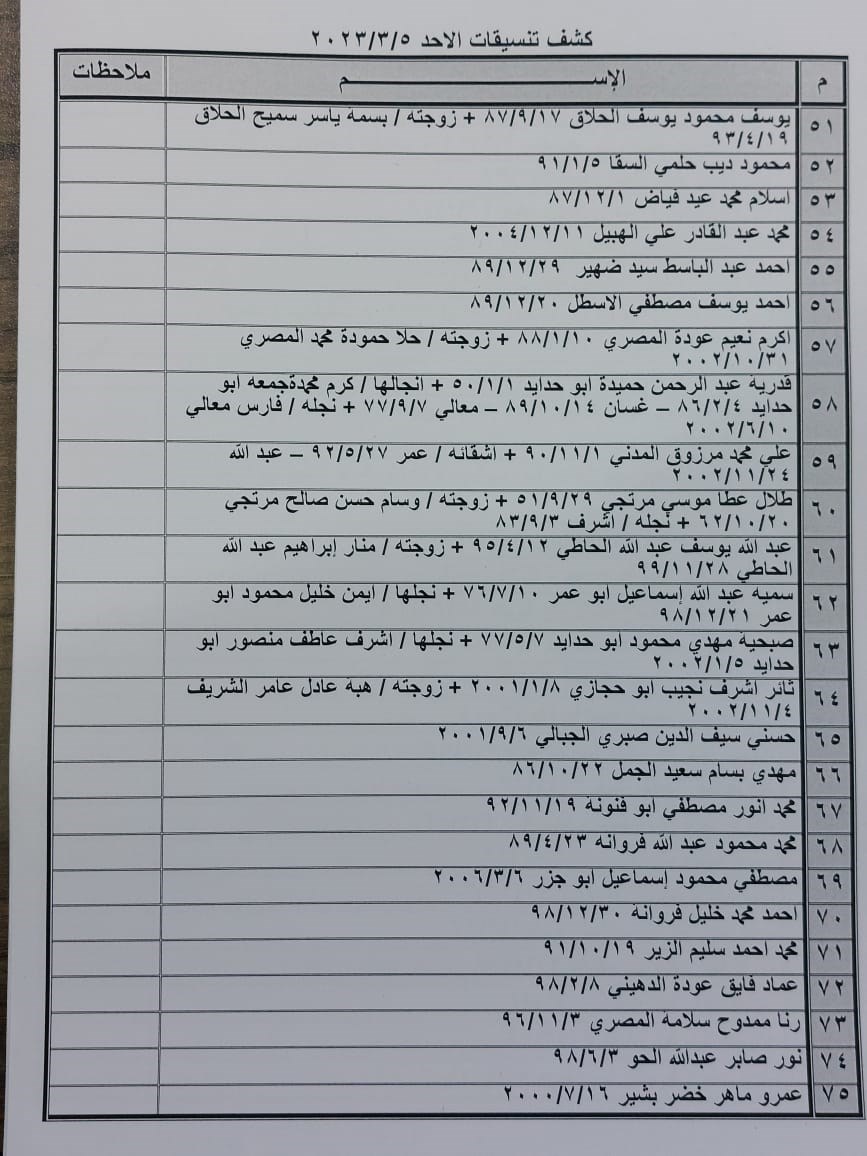 كشف تنسيقات الاحد ٢٠٢٣/٣/٥
م الإســـــــــم ملاحظات
٥١ يوسف محمود يوسف الحلاق ٨٧/٩/١٧ + زوجته / بسمة ياسر سميح الحلاق
٩٣/٤/١٩
٥٢ محمود ديب حلمي السقا ٩١/١/٥
٥٣ اسلام محمد عيد فياض ٨٧/١٢/١
٥٤ محمد عبد القادر علي الهبيل ٢٠٠٤/١٢/١١
٥٥ احمد عبد الباسط سيد ضهير ٨٩/١٢/٢٩
٥٦ احمد يوسف مصطفي الاسطل ٨٩/١٢/٢٠
٥٧ اكرم نعيم عودة المصري ٨٨/١/١٠ + زوجته / حلا حمودة محمد المصري
٢٠٠٢/١٠/٣١
٥٨ قدرية عبد الرحمن حميدة ابو حدايد ٥٠/١/١ + انجالها / كرم محمدةجمعه ابو
حدايد ٨٦/٢/٤ – غسان ٨٩/١٠/١٤ – معالي ٧٧/٩/٧ + نجله / فارس معالي
٢٠٠٢/٦/١٠
٥٩ علي محمد مرزوق المدني ٩٠/١١/١ + اشقائه / عمر ٩٢/٥/٢٧ – عبد الله
٢٠٠٢/١١/٢٤
٦٠ طلال عطا موسي مرتجي ٥١/٩/٢٩ + زوجته / وسام حسن صالح مرتجي
٦٢/١٠/٢٠ + نجله / اشرف ٨٣/٩/٣
٦١ عبد الله يوسف عبد الله الحاطي ٩٥/٤/١٢ + زوجته / منار إبراهيم عبد الله
الحاطي ٩٩/١١/٢٨
٦٢ سميه عبد الله إسماعيل ابو عمر ٧٦/٧/١٠ + نجلها / ايمن خليل محمود ابو
عمر ٩٨/١٢/٢١
٦٣ صبحية مهدي محمود ابو حدايد ٧٧/٥/٧ + نجلها / اشرف عاطف منصور ابو
حدايد ٢٠٠٢/١/٥
٦٤ ثائر اشرف نجيب ابو حجازي ٢٠٠١/١/٨ + زوجته / هبة عادل عامر الشريف
٢٠٠٢/١١/٤
٦٥ حسني سيف الدين صبري الجبالي ٢٠٠١/٩/٦
٦٦ مهدي بسام سعيد الجمل ٨٦/١٠/٢٢
٦٧ محمد انور مصطفي ابو فنونة ٩٢/١١/١٩
٦٨ محمد محمود عبد الله فروانه ٨٩/٤/٢٣
٦٩ مصطفي محمود إسماعيل ابو جزر ٢٠٠٦/٣/٦
٧٠ احمد محمد خليل فروانة ٩٨/١٢/٣٠
٧١ محمد احمد سليم الزير ٩١/١٠/١٩
٧٢ عماد فايق عودة الدهيني ٩٨/٢/٨
٧٣ رنا ممدوح سلامة المصري ٩٦/١١/٣
٧٤ نور صابر عبدالله الحو ٩٨/٦/٣
٧٥ عمرو ماهر خضر بشير ٢٠٠٠/٧/١٦